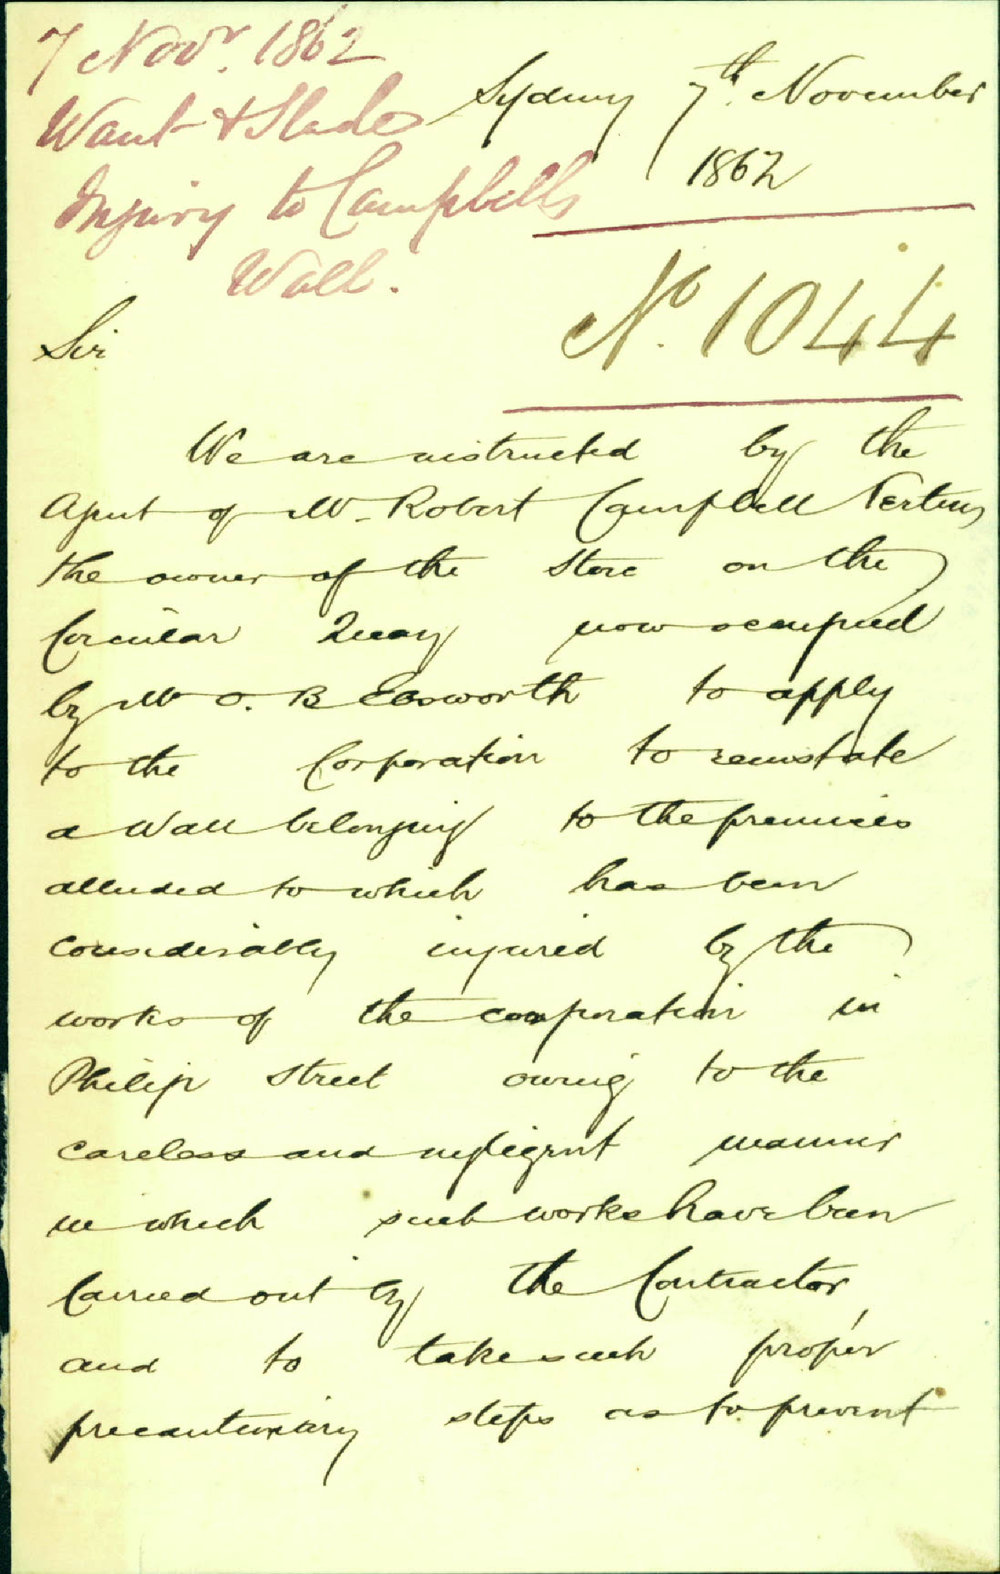 7 Novr. 1862
Want & Slade
Injury to Campbells
Wall.
Sydney 7th. November
1862
No. 1044
Sir
We are instructed by the
Agent of Mr. Robert Campbell Tertius
the owner of the Store on the
Circular Quay now occupied
by Mr O. B Ebsworth to apply
to the Corporation to reinstate
a Wall belonging to the premises
alluded to which has been
considerably injured by the
works of the corporation in
Philip Street owing to the
careless and negligent manner
in which such works have been
carried out by the Contractor,
and to take such proper
precautionary steps as to prevent